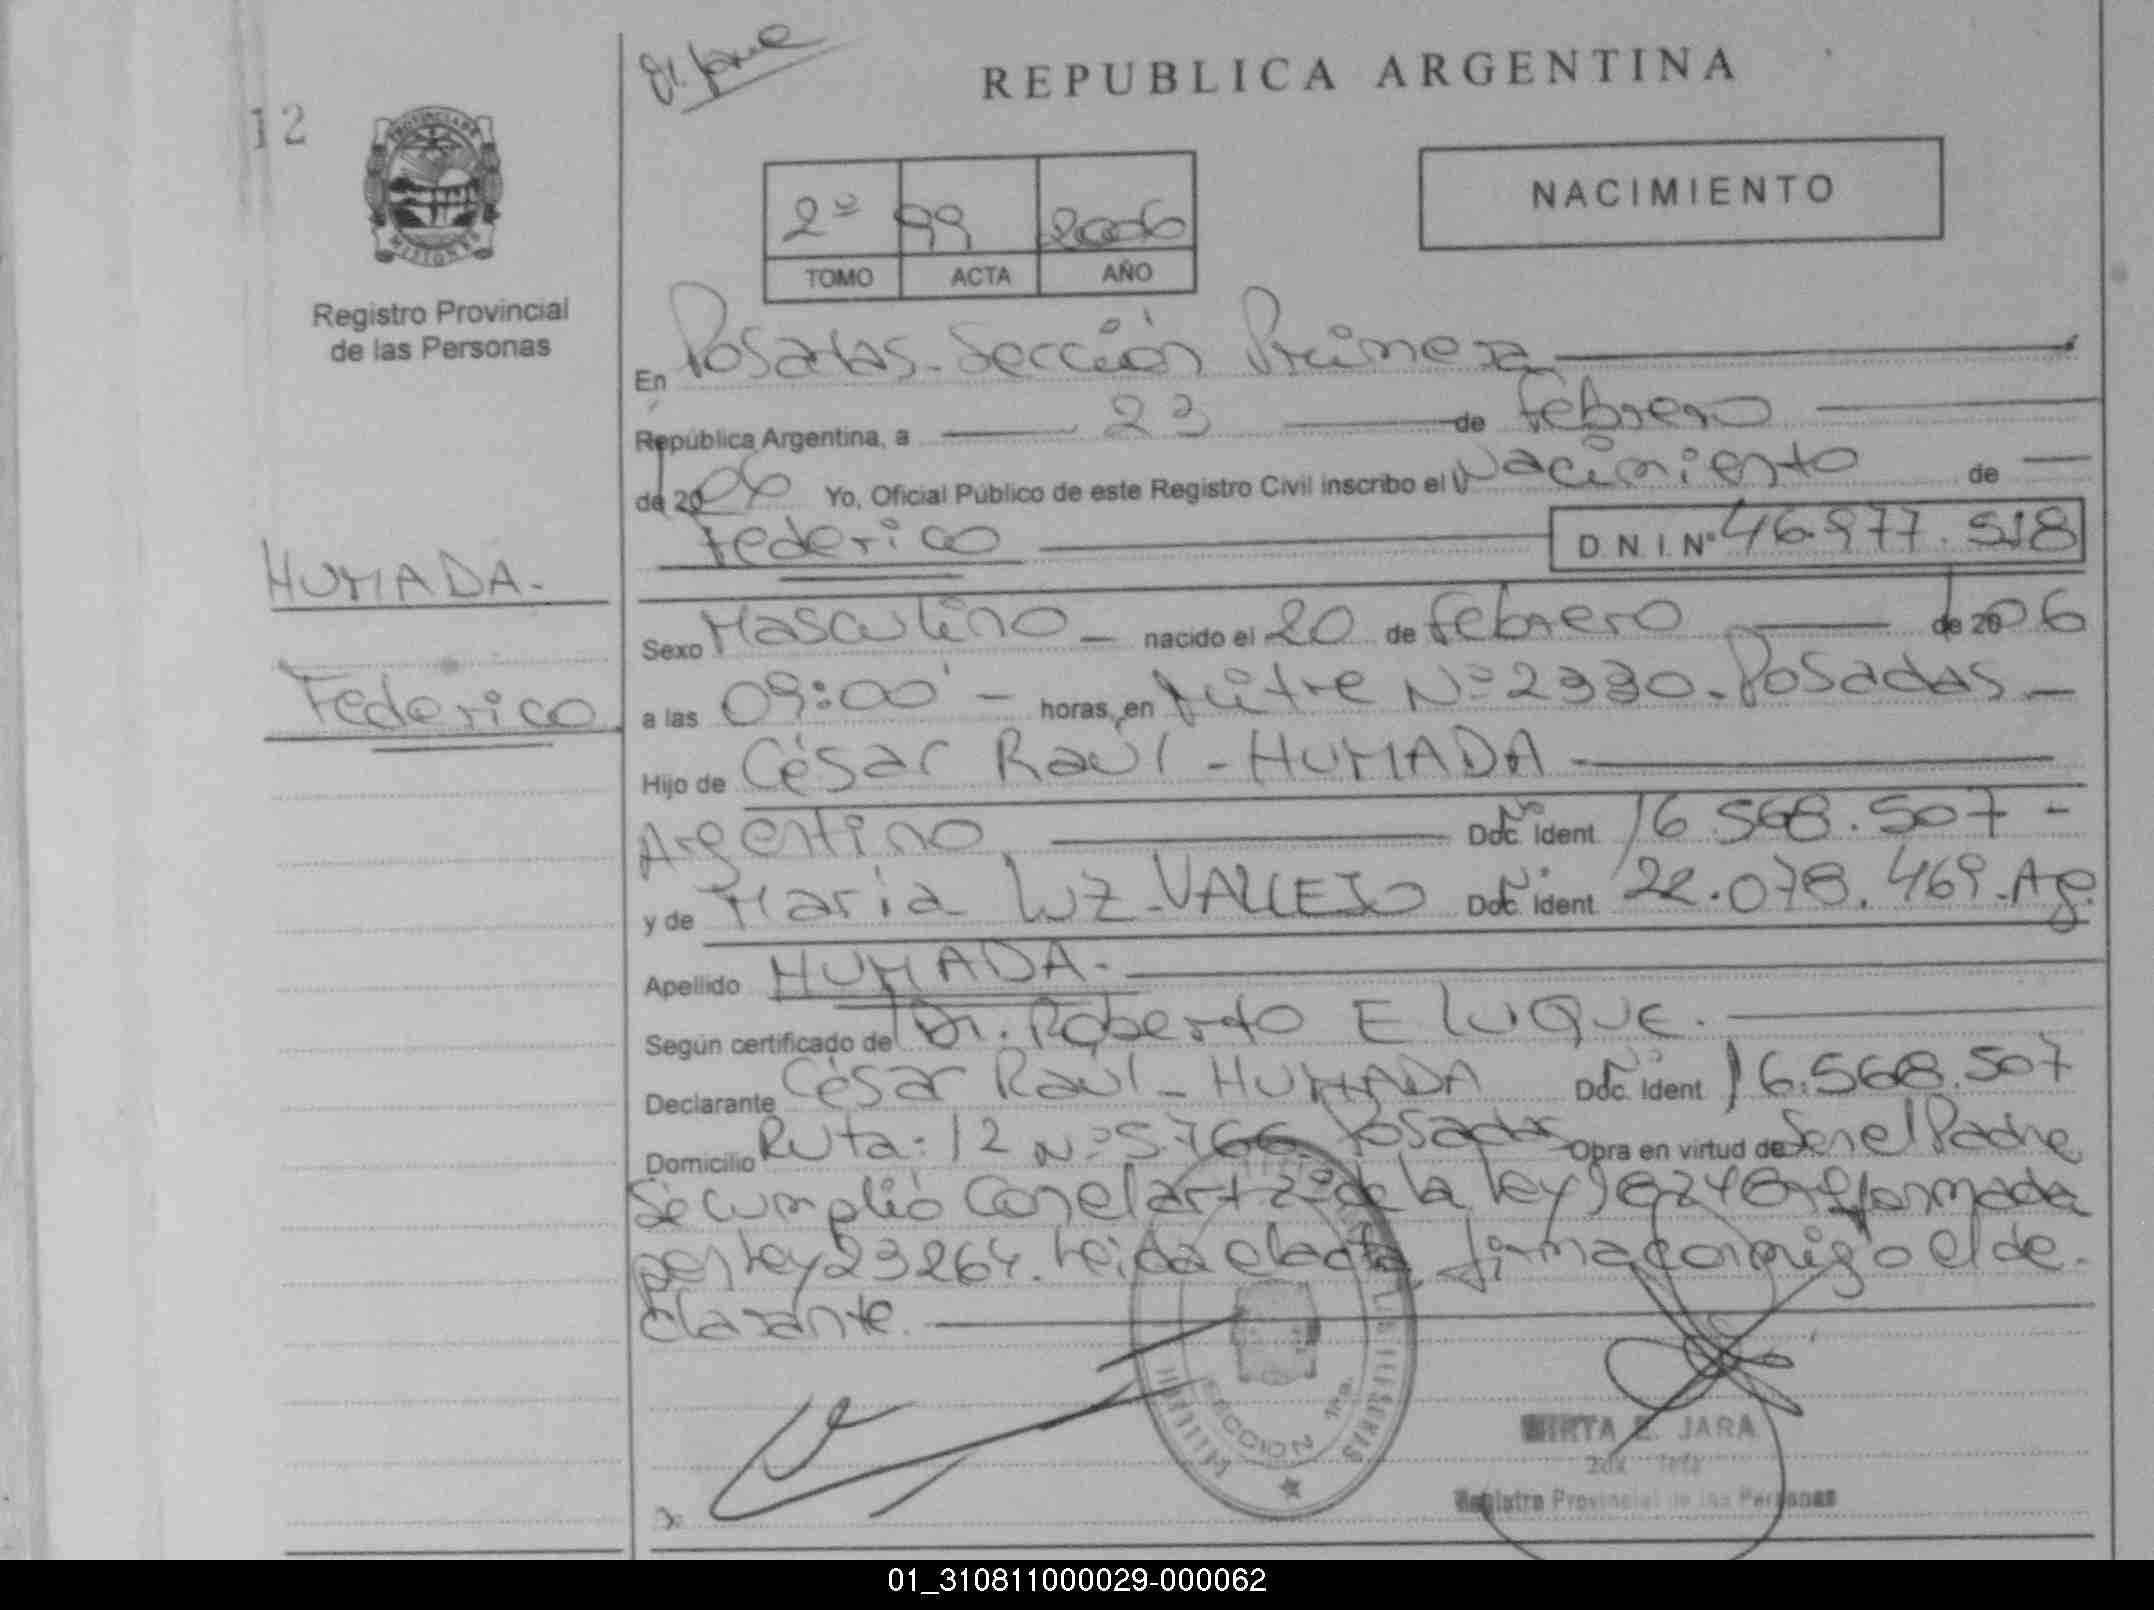 REPUBLICA ARGENTINA
12
PROVINCIA DE
MISIONES
Registro Provincial
de las Personas
NACIMIENTO
2º 99 2006
TOMO ACTA AÑO
En Posadas. Sección Primera
República Argentina, a 23 de Febrero
de 2006 Yo, Oficial Público de este Registro Civil inscribo el Nacimiento de
Federico D N I Nº 46.977.518
HUMADA.
Federico
Sexo Masculino nacido el 20 de Febrero de 2006
a las 09:00' horas, en Mitre Nº 2330. Posadas
Hijo de César Raúl - HUMADA
Argentino Doc. Ident. Nº 16.568.507 -
y de Maria Luz - VALLEJO Doc. Ident. Nº 22.078.469. Ag.
Apellido HUMADA.
Según certificado de Dr. Roberto E LUQUE.
Declarante César Raúl - HUMADA Doc. Ident. Nº 16.568.507
Domicilio Ruta: 12 Nº 5766. Posadas Obra en virtud de Ser el Padre
Se cumplió con el art 2º de la ley 18248 reformada
por ley 23264. Leida el acta, firma conmigo el de-
clarante.
SECCION 1ra.
MIRTA E. JARA
Registro Provincial de las Personas
01_310811000029-000062